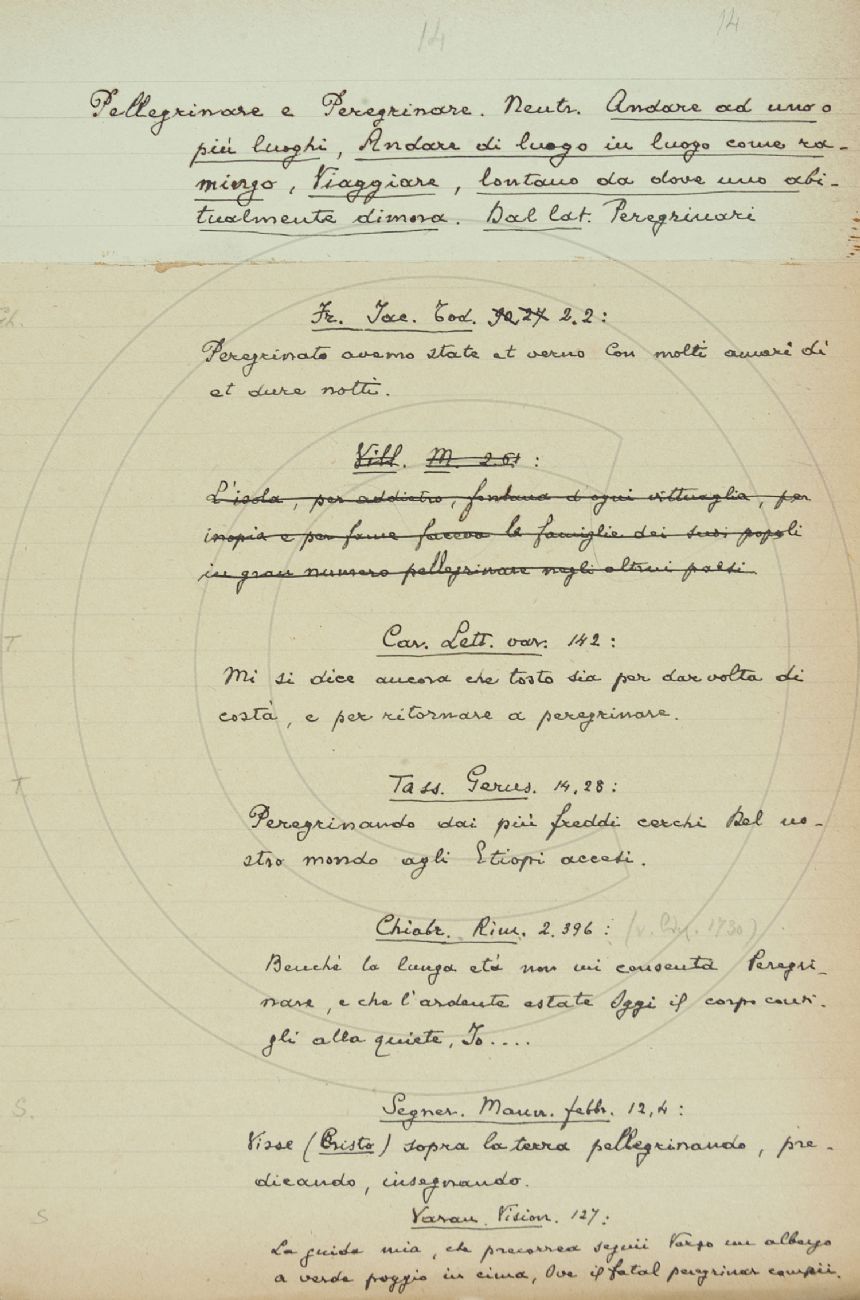 14 14
Pellegrinare e Peregrinare. Neutr. Andare ad uno o
più luoghi, Andare di luogo in luogo come ra-
mingo, Viaggiare, lontano da dove uno abi-
tualmente dimora. Dal lat. Peregrinari
Fr. Iac. Tod. 2.2:
Peregrinato avemo state et verno Con molti amari dì
et dure notti.
Vill. M. 2.61:
L'isola, per addietro, fontana d'ogni vittuaglia, per
inopia e per fame faceva le famiglie dei suoi popoli
in gran numero pellegrinare negli altrui paesi
T
Car. Lett. var. 142:
Mi si dice ancora che tosto sia per dar volta di
costà, e per ritornare a peregrinare.
T
Tass. Gerus. 14,28:
Peregrinando dai più freddi cerchi Del no-
stro mondo agli Etiopi accesi.
Chiabr. Rim. 2.396: 1730)
Benchè la lunga età non mi consenta Peregri-
nare, e che l'ardente estate Oggi il corpo consi-
gli alla quiete, Io....
S.
Segner. Mann. febbr. 12,4:
Visse (Cristo) sopra la terra pellegrinando, pre-
dicando, insegnando.
S
Varan. Vision. 127:
La guida mia, che precorrea seguii Verso un albergo
a verde poggio in cima, Ove il fatal peregrinar compii.